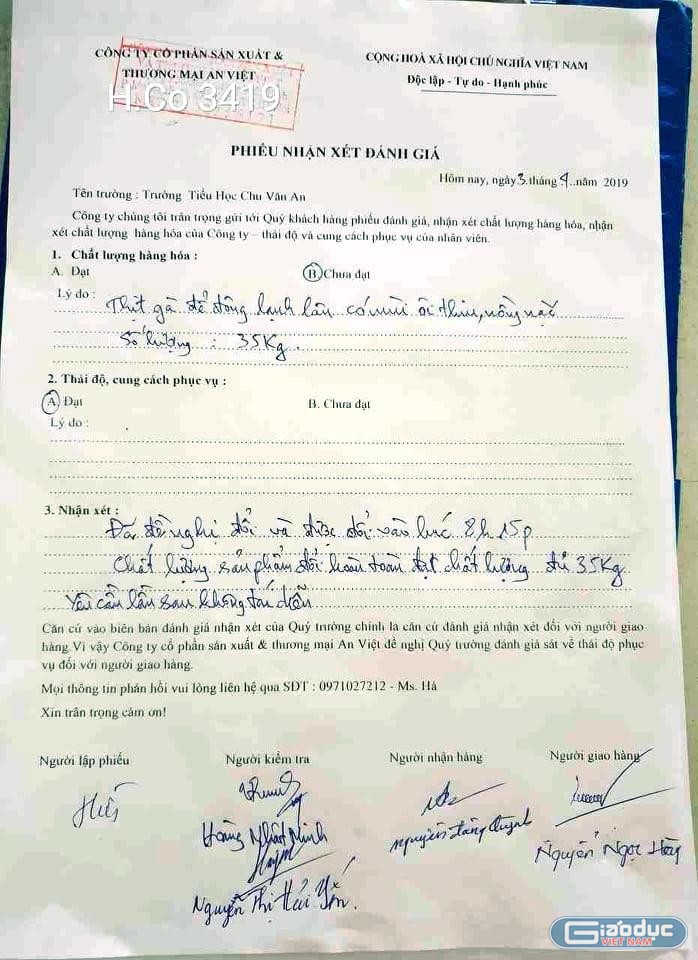 CÔNG TY CỔ PHẦN SẢN XUẤT &
THƯƠNG MẠI AN VIỆT
CỘNG HOÀ XÃ HỘI CHỦ NGHĨA VIỆT NAM
Độc lập - Tự do - Hạnh phúc
H.Co 3419
PHIẾU NHẬN XÉT ĐÁNH GIÁ
Hôm nay, ngày 3 tháng 4 năm 2019
Tên trường : Trường Tiểu Học Chu Văn An
Công ty chúng tôi trân trọng gửi tới Quý khách hàng phiếu đánh giá, nhận xét chất lượng hàng hóa, nhận
xét chất lượng hàng hóa của Công ty – thái độ và cung cách phục vụ của nhân viên.
1. Chất lượng hàng hóa :
A. Đạt B. Chưa đạt
Lý do : Thịt gà để đông lạnh lâu có mùi ôi thiu, nồng nặc
Số lượng : 35Kg.
2. Thái độ, cung cách phục vụ :
A. Đạt B. Chưa đạt
Lý do :
3. Nhận xét :
Đã đề nghị đổi và được đổi vào lúc 8h 15p
Chất lượng sản phẩm đổi hoàn toàn đạt chất lượng đủ 35Kg
Yêu cầu lần sau không tái diễn
Căn cứ vào biên bản đánh giá nhận xét của Quý trường chính là căn cứ đánh giá nhận xét đối với người giao
hàng.Vì vậy Công ty cổ phần sản xuất & thương mại An Việt đề nghị Quý trường đánh giá sát về thái độ phục
vụ đối với người giao hàng.
Mọi thông tin phản hồi vui lòng liên hệ qua SĐT : 0971027212 - Ms. Hà
Xin trân trọng cảm ơn!
Người lập phiếu Người kiểm tra Người nhận hàng Người giao hàng
Hoàng Nhật Minh
Nguyễn Đăng Quỳnh
Nguyễn Ngọc
Nguyễn Thị Hải Yến.
Giáo dục
VIỆT NAM